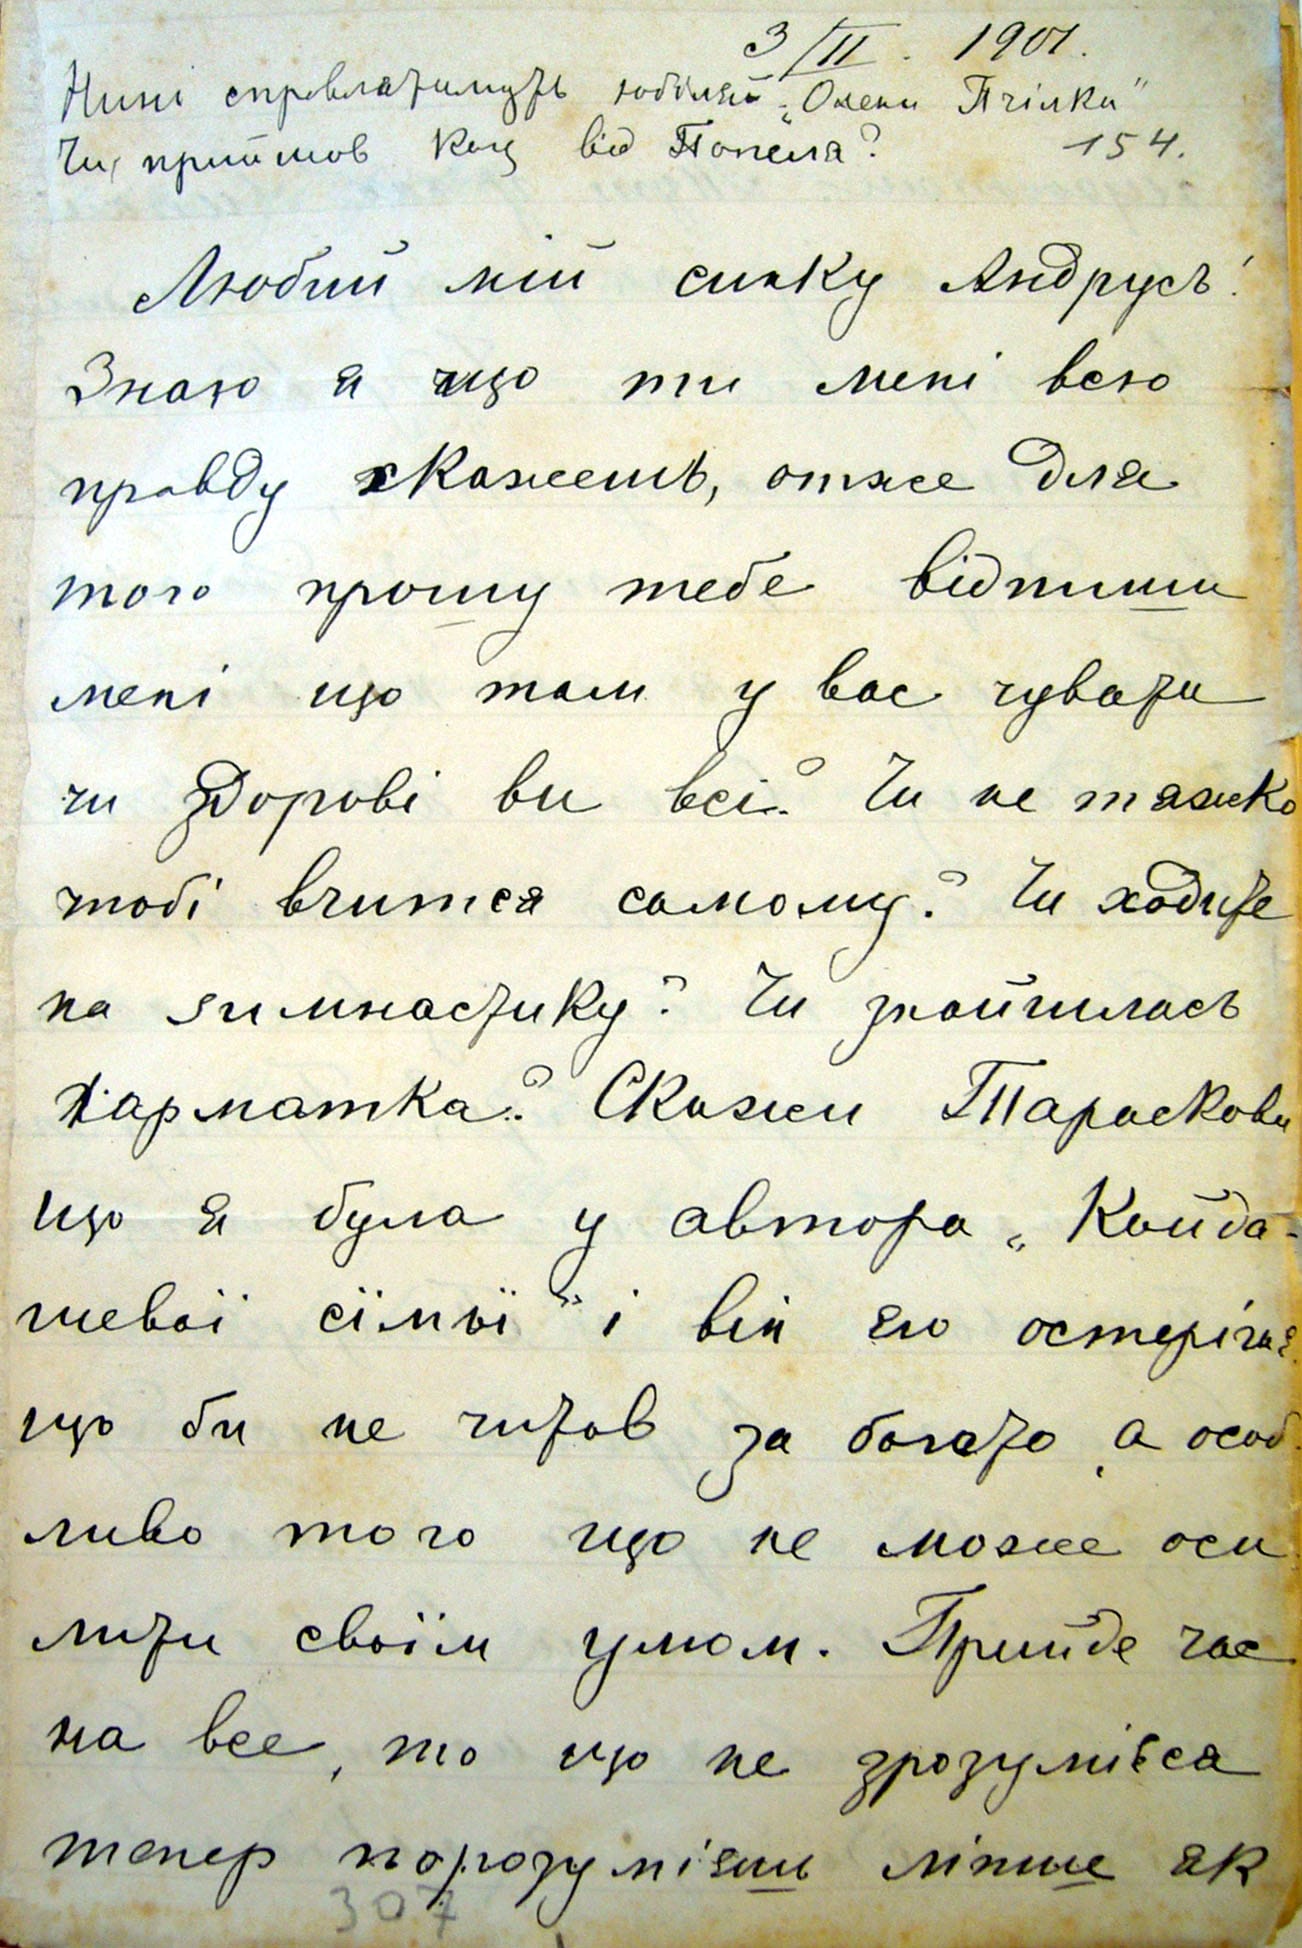 3/II. 1901.
Нині справлятимуть юбілей „Олени Пчілки"
Чи прийшов коц від Попеля? 154.
Любий мій синку Андрусь!
Знаю я що ти мені всю
правду скажешь, отже для
того прошу тебе відпиши
мені що там у вас чувати
чи здорові ви всі? Чи не тяжко
тобі вчитися самому? Чи ходите
на гимнастику? Чи знайшлась
гарматка? Скажи Тараскови
що я була у автора „Кайда-
шевої сїмьї" і він єго остерігає
що би не читав за богато, а особ
ливо того що не може оси
лити своїм умом. Прийде час
на все, то що не зрозумівся
тепер порозумієшь ліпше як
307